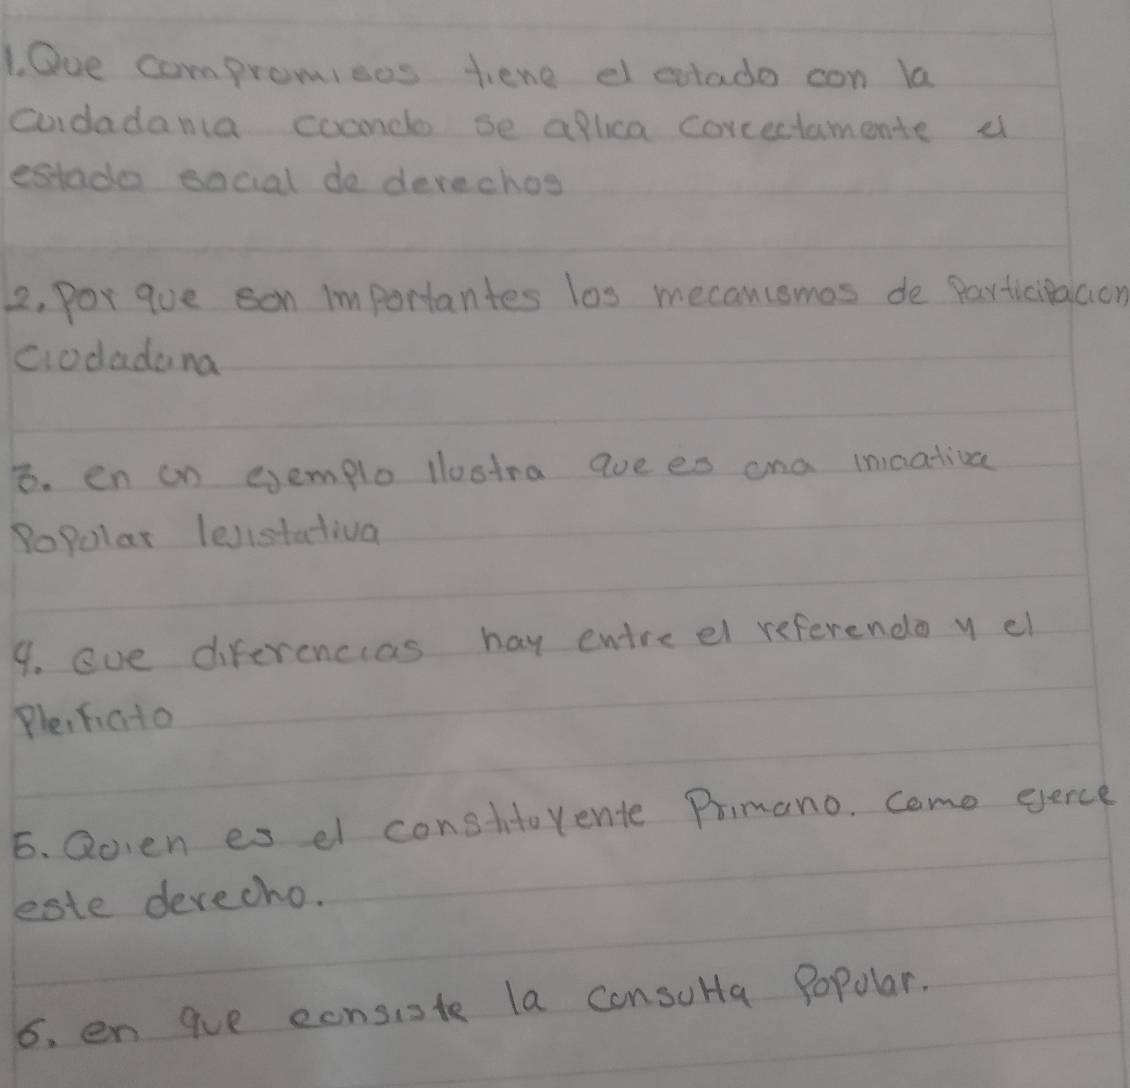 1. Que compromisos tiene el estado con la
cuidadania cuando se aplica correctamente el
estado social de derechos
2. Por que son importantes los mecanismos de Participacion
ciudadana
3. en un ejemplo ilustra que es una iniciativa
Popular lejistativa
4. Que diferencias hay entre el referendo y el
Pleificito
5. Quien es el constituyente Primario. como ejerce
este derecho.
6. en que consiste la consulta Popular.